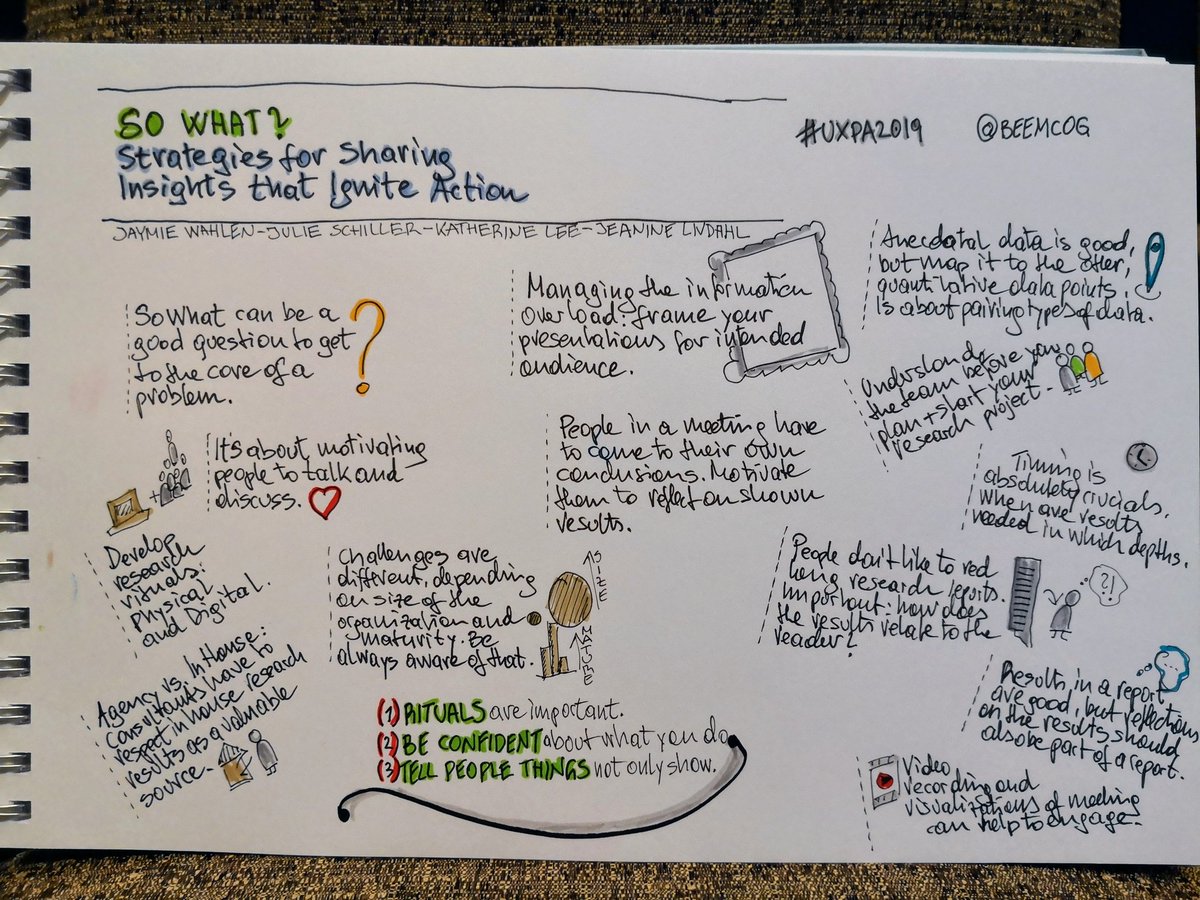 SO WHAT?
Strategies for Sharing
Insights that Ignite Action
#UXPA2019
@BEEMCOG
JAYMIE WAHLEN-JULIE SCHILLER-KATHERINE LEE-JEANINE LINDAHL
So What can be a
good question to get
to the core of a
problem.
?
Managing the information
overload: frame your
presentations for intended
audience.
Anecdatal data is good,
but map it to the other,
quantilative data points.
Is about pairing types of data.
Understand
the team before you
plan + start your
research project.
It's about motivating
people to talk and
discuss.
+
People in a meeting have
to come to their own
conclusions. Motivate
them to reflect on shown
results.
Timing is
absolutely crucials.
When are results
needed in which depths.
Develop
research
rituals:
Physical
and Digital.
Challenges are
different, depending
on size of the
organization and
maturity. Be
always aware of that.
SIZE
MATURE
People don't like to red
long research reports.
Important: how does
the results relate to the
reader!
!?
Agency vs. InHouse:
Consultants have to
respect in house research
results as a valuable
source.
Results in a report
are good, but reflection
on the results should
also be part of a report.
(1) RITUALS are important.
(2) BE CONFIDENT about what you do.
(3) TELL PEOPLE THINGS not only show.
Video
recording and
visualizations of meeting
can help to engage.